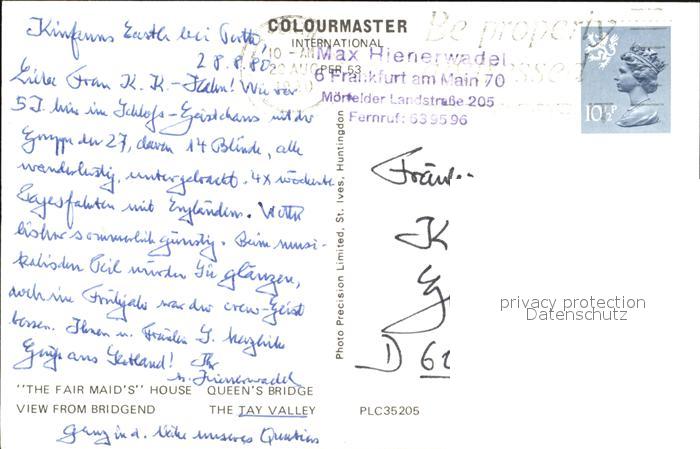 COLOURMASTER
INTERNATIONAL
Kinfauns Castle bei Perth,
28.8.80
Liebe Frau K. K.-Hahn! Wie vor
5 J. hier im Schloss-Gästehaus mit der
Gruppe der 27, davon 14 Blinde, alle
wanderlustig, untergebracht. 4x wöchentl.
Tagesfahrten mit Engländern. Wetter
bisher sommerlich günstig. Beim musi-
kalischen Teil würden Sie glänzen,
doch im Frühjahr war der crew-Geist
besser. Ihnen u. Fräulein G. herzliche
Grüße aus Schottland! Ihr
M. Hienerwadel
"THE FAIR MAID'S" HOUSE QUEEN'S BRIDGE
VIEW FROM BRIDGEND THE TAY VALLEY PLC35205
Ganz in d. Nähe unseres Quartiers
Photo Precision Limited, St. Ives, Huntingdon
Be properly
10-AM
28 AUG
1980
Max Hienerwadel
6 Frankfurt am Main 70
Mörfelder Landstraße 205
Fernruf: 63 95 96
10½P
Fräul..
K
G
D 62
privacy protection
Datenschutz